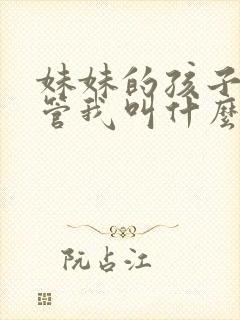 妹妹的孩子
管我叫什麼
阮占江